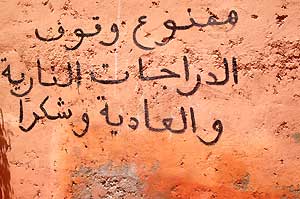 ممنوع وقوف
الدراجات النارية
والعادية وشكرا